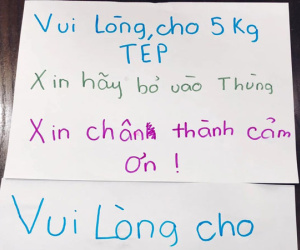 Vui Lòng, cho 5 Kg
TÉP
Xin hãy bỏ vào Thùng
Xin chân thành cảm
ơn !
Vui Lòng cho